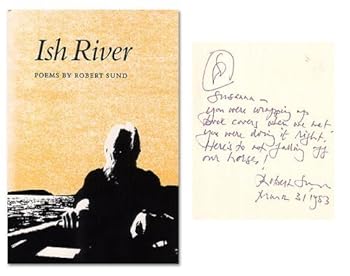 Ish River
POEMS BY ROBERT SUND
Susanna —
you were wrapping up
book covers when we met
you were doing it right.
Here's to not falling off
our horses!
Robert Sund
March 31 1983